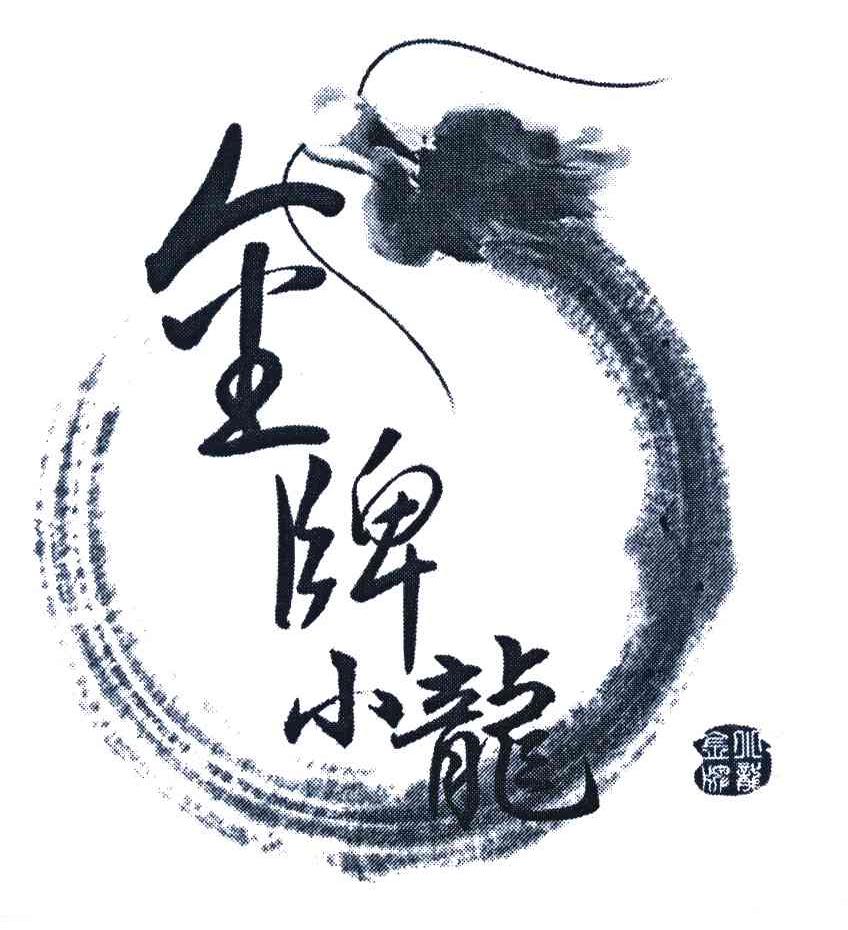 金牌
小龍
小龍
金牌